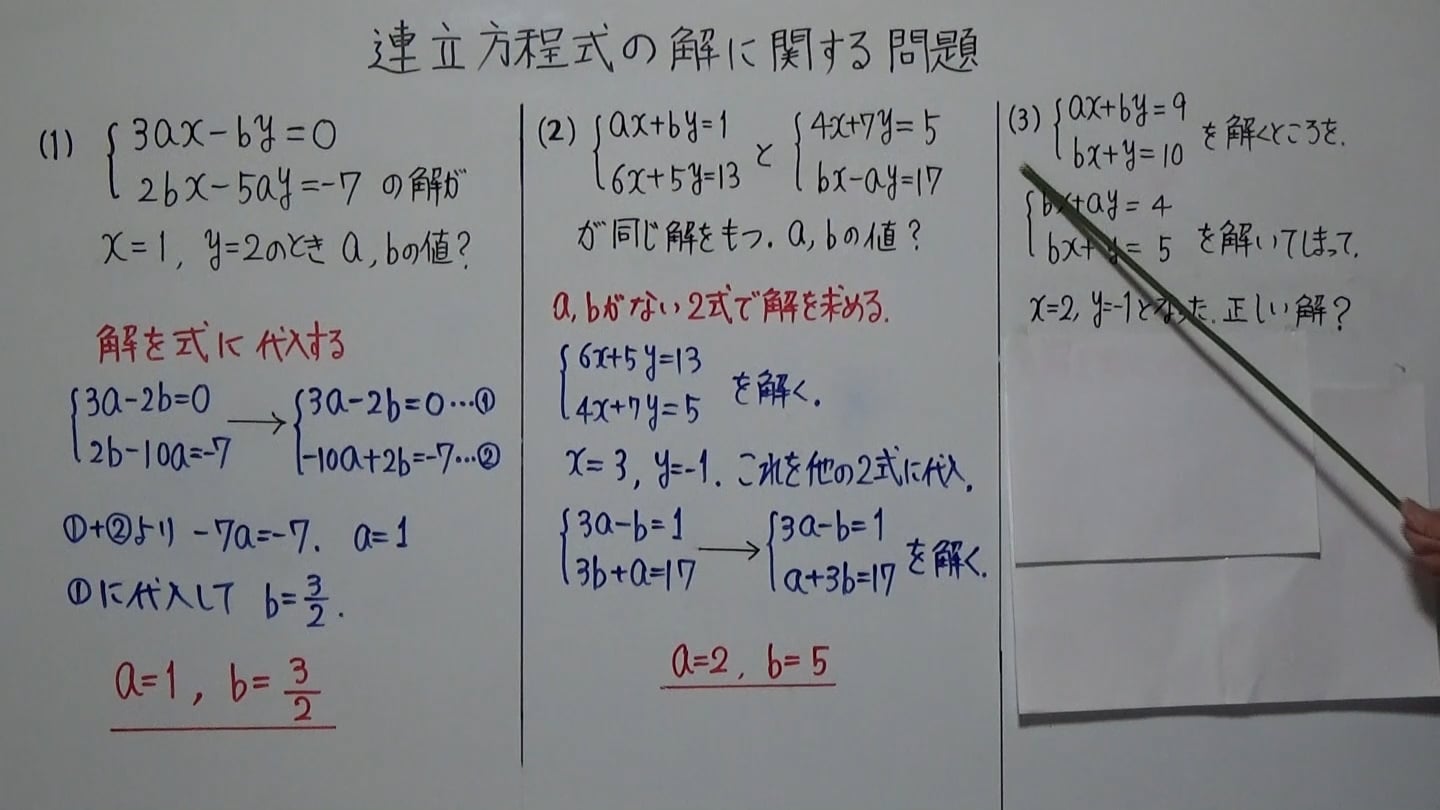 連立方程式の解に関する問題
(1) { 3ax-by=0
2bx-5ay=-7 の解が
x=1, y=2のとき a,bの値?
解を式に代入する
{ 3a-2b=0 → { 3a-2b=0…①
2b-10a=-7 -10a+2b=-7…②
①+②より -7a=-7. a=1
①に代入して b=3/2.
a=1, b=3/2
(2) { ax+by=1 と { 4x+7y=5
6x+5y=13 bx-ay=17
が同じ解をもつ. a,bの値?
a,bがない2式で解を求める.
{ 6x+5y=13
4x+7y=5 を解く.
x=3, y=-1. これを他の2式に代入.
{ 3a-b=1 → { 3a-b=1
3b+a=17 a+3b=17 を解く.
a=2, b=5
(3) { ax+by=9
bx+y=10 を解くところを.
{ bx+ay=4
bx+y=5 を解いてしまって.
x=2, y=-1となった. 正しい解?